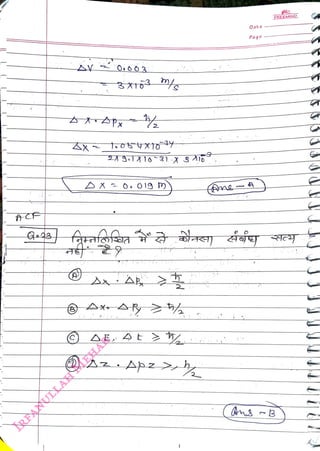 Date
Page
ΔV = 0.003
= 3×10⁻³ m/s
Δx . ΔPx = ħ/2
Δx = 1.054×10⁻³⁴ / 2×9.1×10⁻³¹ × 3×10⁻³
Δx = 0.019 m
Ans - A
A CF
Q.23 निम्नलिखित में से कौनसा संबंध सत्य
नहीं है ?
(A) Δx . ΔPx ≥ ħ/2
(B) Δx . ΔPy ≥ ħ/2
(C) ΔE . Δt ≥ ħ/2
(D) Δz . Δpz ≥ ħ/2
Ans - B
IRFANULLAH